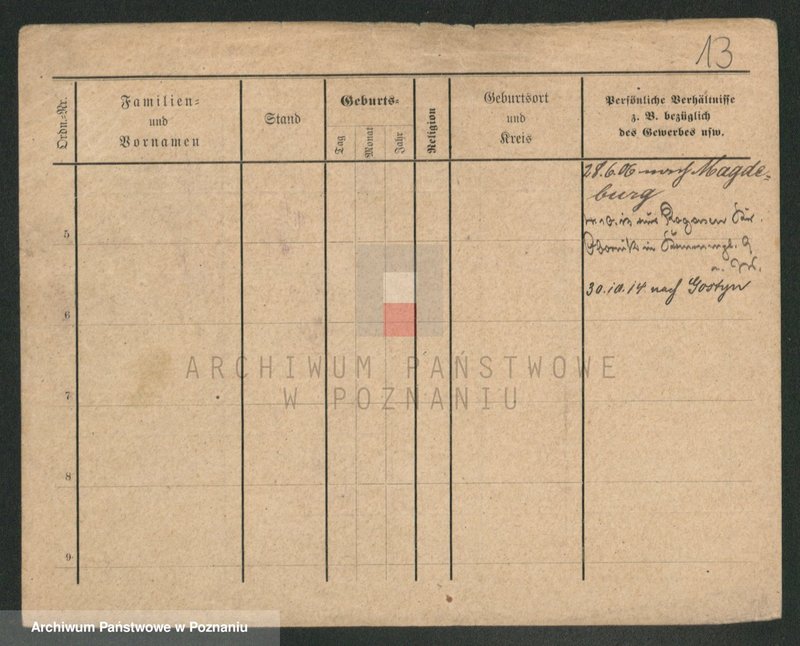 13
Ordn.-Nr.
Familien-
und
Vornamen
Stand
Geburts-
Tag
Monat
Jahr
Religion
Geburtsort
und
Kreis
Persönliche Verhältnisse
z. B. bezüglich
des Gewerbes usw.
28.6.06 nach Magde-
burg
aus Rogasen
in
30.10.14 nach Gostyn
5
6
7
8
9
ARCHIWUM PAŃSTWOWE
W POZNANIU
Archiwum Państwowe w Poznaniu